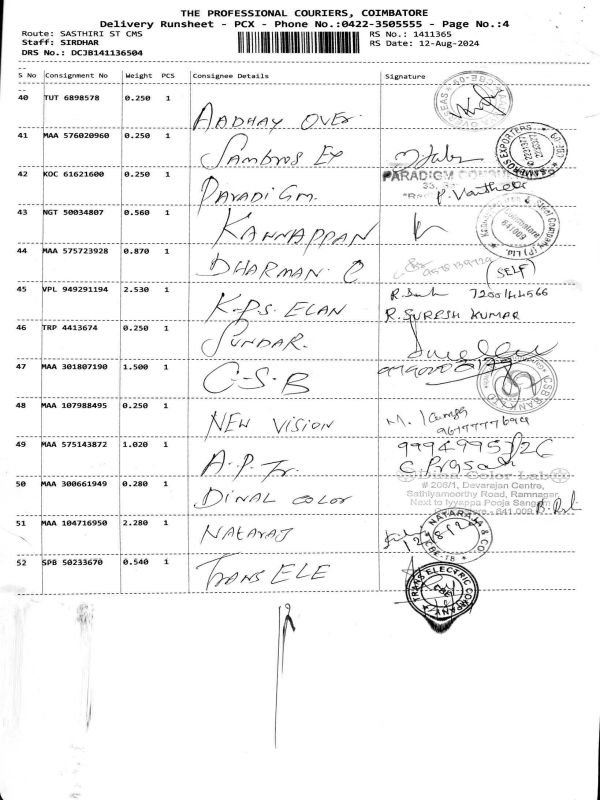 THE PROFESSIONAL COURIERS, COIMBATORE
Delivery Runsheet - PCX - Phone No.:0422-3505555 - Page No.:4
Route: SASTHIRI ST CMS RS No.: 1411365
Staff: SIRDHAR RS Date: 12-Aug-2024
DRS No.: DCJB141136504
S No Consignment No Weight PCS Consignee Details Signature
40 TUT 6898578 0.250 1 AADHAY OVER
41 MAA 576020960 0.250 1 Sambros EX
SAMBROS EXPORTERS
42 KOC 61621600 0.250 1 Paradigm
PARADIGM
P. Vantheer
43 NGT 50034807 0.560 1 KANNAPPAN
Coimbatore
641 009
44 MAA 575723928 0.870 1 DHARMAN C
(SELF)
45 VPL 949291194 2.530 1 K.P.S. ELAN
7200144566
R. SURESH KUMAR
46 TRP 4413674 0.250 1 SUNDAR.
47 MAA 301807190 1.500 1 C-S-B
CSB BANK LTD
48 MAA 107988495 0.250 1 NEW VISION
49 MAA 575143872 1.020 1 A.P. Tr.
C. Prasad
50 MAA 300661949 0.280 1 DINAL COLOR
Color Lab
# 208/1, Devarajan Centre,
Sathiyamoorthy Road, Ramnagar,
Next to Iyyappa Pooja Sangam
641 009
51 MAA 104716950 2.280 1 NATARAJ
NATARAJA & CO.
CBE-18
52 SPB 50233670 0.540 1 TRANS ELE
TRANS ELECTRIC COMPANY